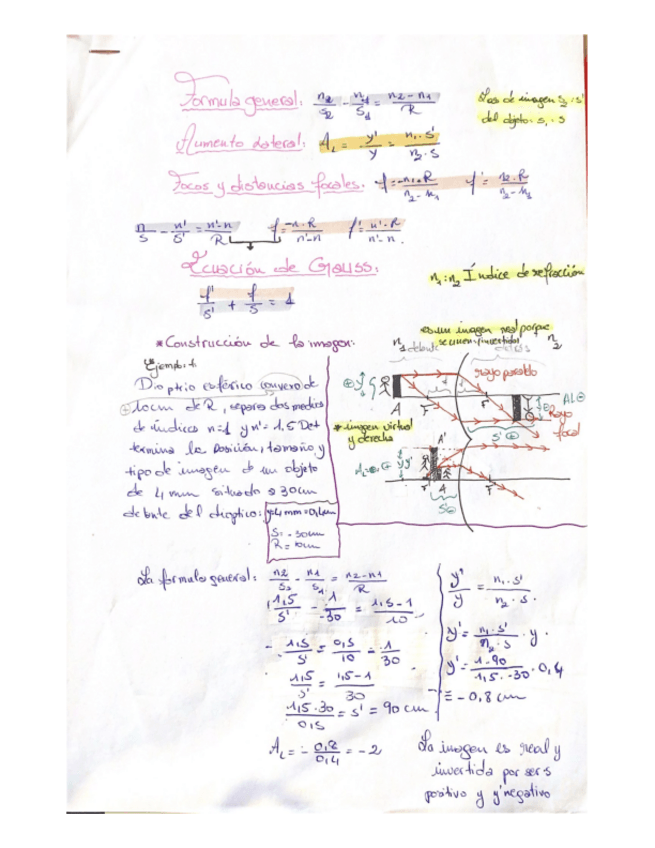 Formula general: n2/s2 - n1/s1 = n2-n1/R
Aumento Lateral: AL = y'/y = n1·s'/n2·s
Focos y distancias focales. f = -n1·R/n2-n1 f' = n2·R/n2-n1
n/s - n'/s' = n'-n/R f = -n·R/n'-n f' = n'·R/n'-n.
Los de imagen s2 : s'
del objeto: s1 · s
Ecuación de Gauss:
f'/s' + f/s = 1
n1 : n2 Índice de refracción
*Construcción de la imagen:
Ejemplo 1:
Dioptrio esférico convexo de
10cm de R, separa dos medios
de índices n=1 y n'=1,5 Det
termina la posición, tamaño y
tipo de imagen de un objeto
de 4 mm situado a 30cm
delante del dioptrio:
y=4mm=0,4cm
S=-30cm
R=10cm
es un imagen real porque
n1 delante
detrás n2
rayo paralelo
Rayo
focal
AL⊖
A F
S' ⊕
*imagen virtual
y derecha
A'
A F
S⊖
La formula general: n2/s2 - n1/s1 = n2-n1/R
1,5/s' - 1/-30 = 1,5-1/10
1,5/s' = 0,5/10 - 1/30
1,5/s' = 1,5-1/30
1,5·30/0,5 = s' = 90 cm.
AL = -0,8/0,4 = -2
y'/y = n1·s'/n2·s.
y' = n1·s'/n2·s · y.
y' = 1·90/1,5·-30 · 0,4
= -0,8 cm
La imagen es real y
invertida por ser s
positivo y y' negativo